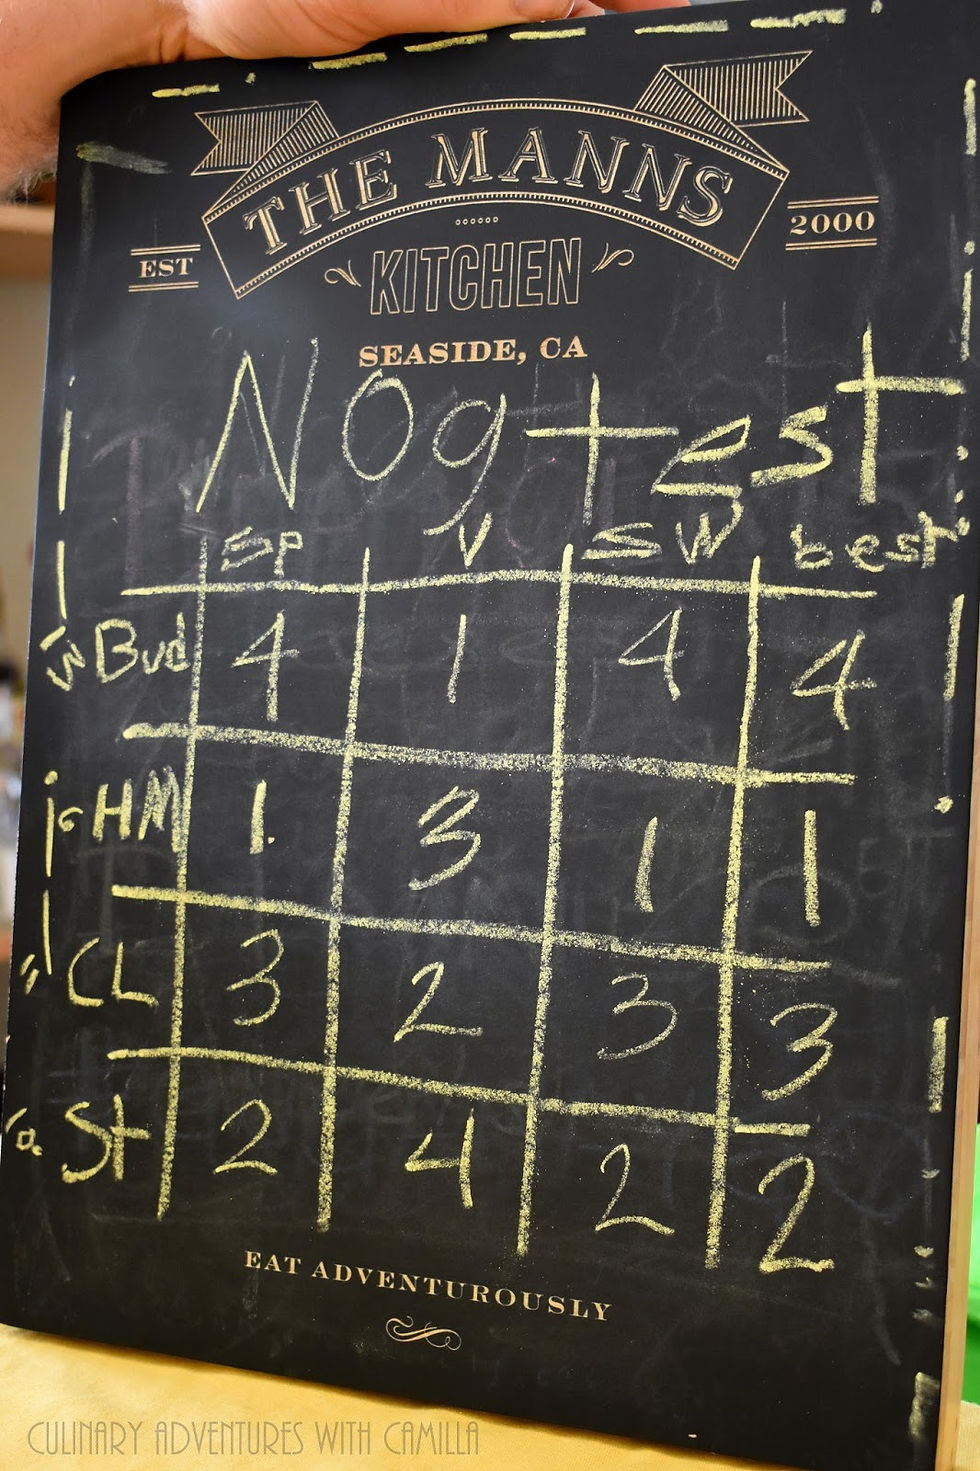 THE MANNS
EST 2000
KITCHEN
SEASIDE, CA
NOg test
SP V SW best
Bud 4 1 4 4
HM 1. 3 1 1
CL 3 2 3 3
St 2 4 2 2
EAT ADVENTUROUSLY
CULINARY ADVENTURES WITH CAMILLA